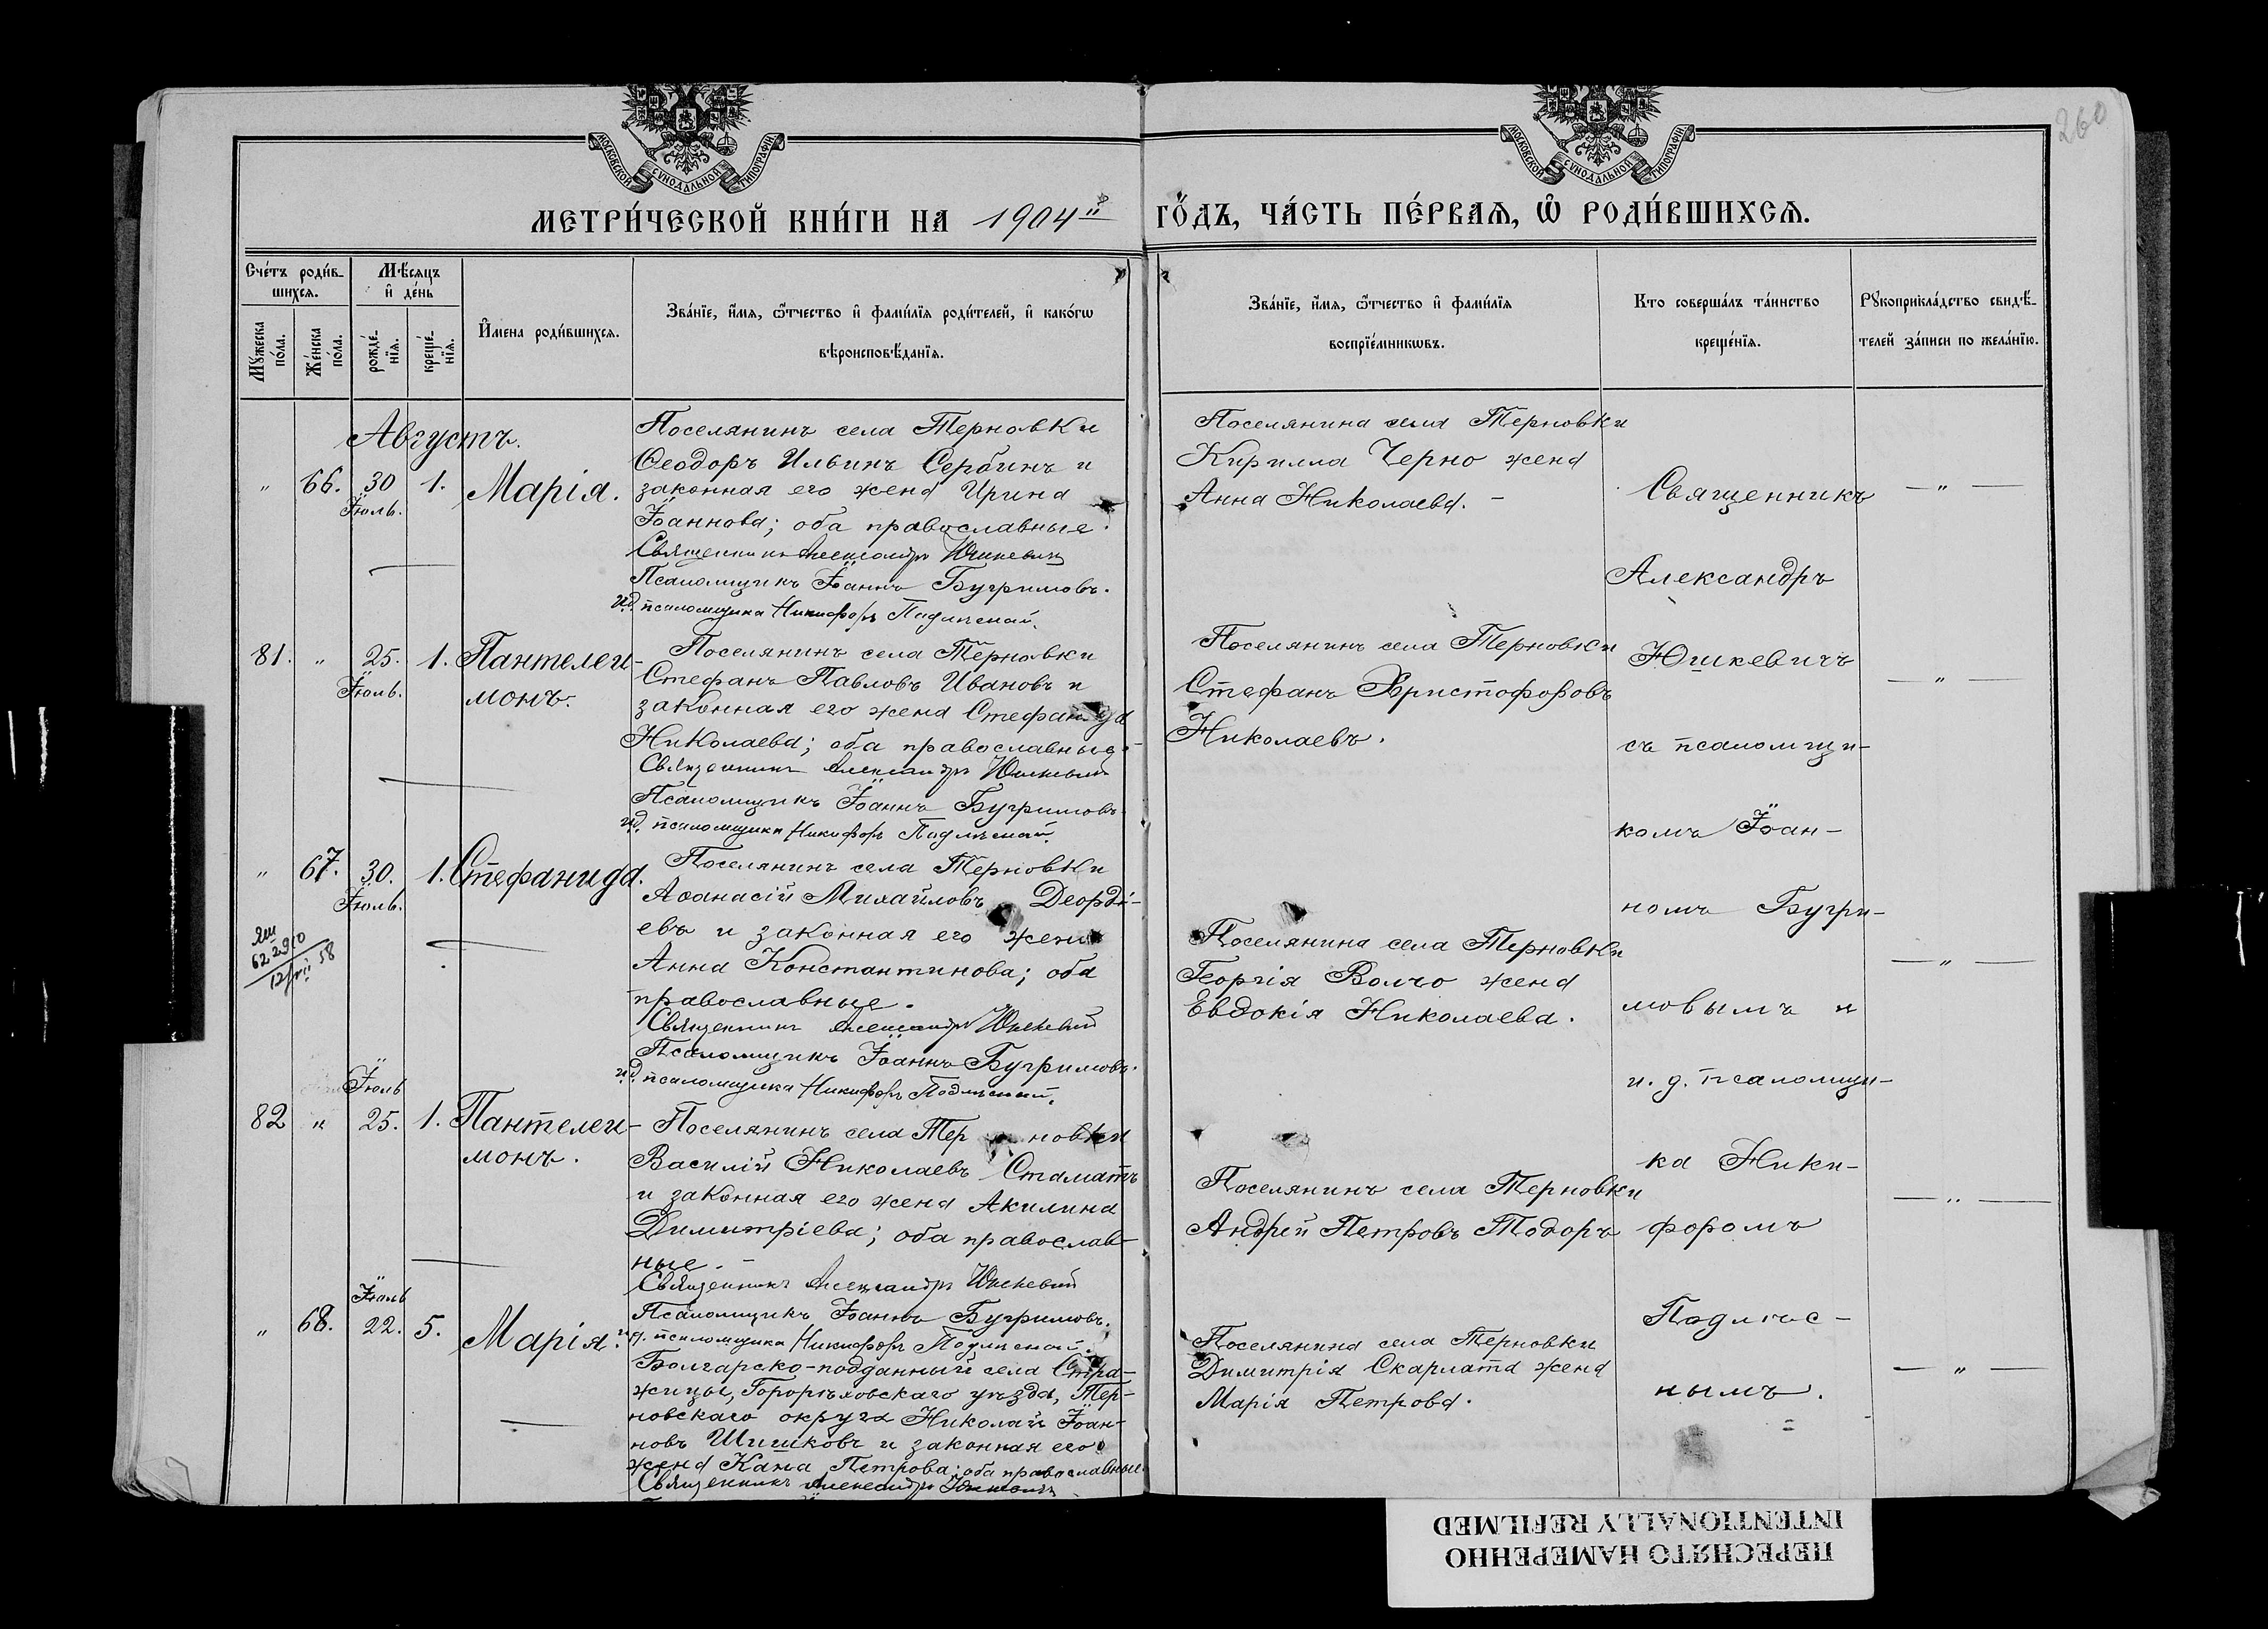 260
МОСКОВСКОЙ СѴНОДАЛЬНОЙ ТИПОГРАФІИ
МОСКОВСКОЙ СѴНОДАЛЬНОЙ ТИПОГРАФІИ
МЕТРИ́ЧЕСКОЙ КНИ́ГИ НА 1904й
ГО́ДЪ, ЧА́СТЬ ПЕ́РВАѦ, Ѡ҆ РОДИ́ВШИХСѦ.
Сче́тъ роди́в-
шихсѧ.
Мѣ́сѧцъ
и҆ де́нь
Мꙋ́жеска
по́ла.
Же́нска
по́ла.
рожде́-
нїѧ.
креще́-
нїѧ.
И҆мена роди́вшихсѧ.
Зва́нїе, и҆́мѧ, ѻ҆́тчество и҆ фами́лїѧ роди́телей, и҆ како́гѡ
вѣроисповѣ́данїѧ.
Зва́нїе, и҆́мѧ, ѻ҆́тчество и҆ фами́лїѧ
воспрїе́мникѡвъ.
Кто соверша́лъ та́инство
креще́нїѧ.
Рꙋкоприкла́дство свидѣ́-
телей за́писи по жела́нїю.
Августъ.
" 66. 30 Іюль. 1. Марія.
Поселянинъ села Терновки
Ѳеодоръ Ильинъ Сербинъ и
законная его жена Ирина
Іоаннова; оба православные.
Священникъ Александръ Юшкевичъ
Псаломщикъ Іоаннъ Бугримовъ.
И.д. псаломщика Никифоръ Подлѣсный.
Поселянина села Терновки
Кирилла Черно жена
Анна Николаева. -
— " —
81. " 25. Іюль. 1. Пантелеи-
монъ.
Поселянинъ села Терновки
Стефанъ Павловъ Ивановъ и
законная его жена Стефанида
Николаева; оба православные.
Священникъ Александръ Юшкевичъ
Псаломщикъ Іоаннъ Бугримовъ.
и.д. псаломщика Никифоръ Подлѣсный.
Поселянинъ села Терновки
Стефанъ Христофоровъ
Николаевъ.
— " —
" 67. 30. Іюль. 1. Стефанида.
Поселянинъ села Терновки
Аѳанасій Михайловъ Деорді-
евъ и законная его жена
Анна Константинова; оба
православные.
Священникъ Александръ Юшкевичъ
Псаломщикъ Іоаннъ Бугримовъ.
и.д. псаломщика Никифоръ Подлѣсный.
Поселянина села Терновки
Георгія Волчо жена
Евдокія Николаева.
— " —
82 " Іюль 25. 1. Пантелеи-
монъ.
Поселянинъ села Тер новки
Василій Николаевъ Стаматъ
и законная его жена Акилина
Димитріева; оба православ-
ные. -
Священникъ Александръ Юшкевичъ
Псаломщикъ Іоаннъ Бугримовъ.
и.д. псаломщика Никифоръ Подлѣсный.
Поселянинъ села Терновки
Андрей Петровъ Тодоръ
— " —
" 68. Іюль 22. 5. Марія.
Болгарско-подданный села Стра-
жицы, уѣзда, Тер-
новскаго округа Николай Іоан-
новъ Шишковъ и законная его
жена Кана Петрова; оба православные.
Священникъ Александръ Юшкевичъ
Поселянина села Терновки
Димитрія Скарлата жена
Марія Петрова.
— " —
Священникъ
Александръ
Юшкевичъ
съ псаломщи-
комъ Іоан-
номъ Бугри-
мовымъ и
и. д. псаломщи-
ка Ники-
форомъ
Подлѣс-
нымъ.
ПЕРЕСНЯТО НАМЕРЕННО
INTENTIONALLY REFILMED